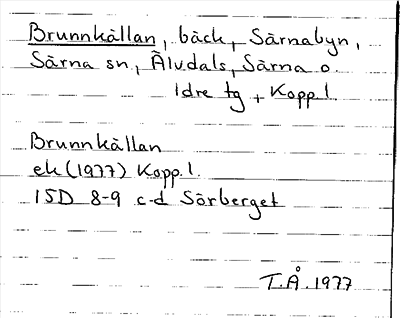 Brunnkällan, bäck, Särnabyn,
Särna sn, Älvdals, Särna o.
Idre tg, Kopp.l.
Brunnkällan
ek (1977) Kopp.l.
15D 8-9 c-d Sörberget
T.Å. 1977